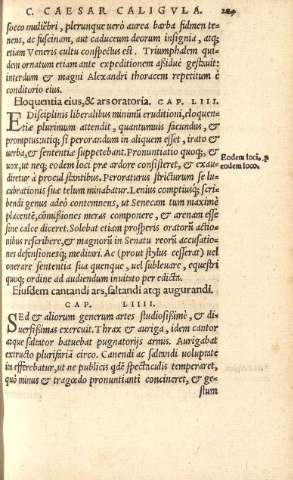 C. CAESAR CALIGVLA. 224
socco muliebri, plerunque uerò aurea barba fulmen te-
nens, ac fuscinam, aut caduceum deorum insignia, atq;
etiam Veneris cultu conspectus est. Triumphalem qui-
dem ornatum etiam ante expeditionem aßiduè gestauit:
interdum & magni Alexandri thoracem repetitum è
conditorio eius.
Eloquentia eius, & ars oratoria. CAP. LIII.
E Disciplinis liberalibus minimũ eruditioni, eloquen-
tiæ plurimum attendit, quantumuis facundus, &
promptus: utiq; si perorandum in aliquem esset, irato &
uerba, & sententiæ suppetebant. Pronuntiatio quoq;, &
uox, ut neq; eodem loci præ ardore consisteret, & exau-
diretur à procul stantibus. Peroraturus stricturum se lu-
cubrationis suæ telum minabatur. Lenius comptiusq; scri-
bendi genus adeò contemnens, ut Senecam tum maximè
placentẽ, cõmißiones meras componere, & arenam esse
sine calce diceret. Solebat etiam prosperis oratorũ actio-
nibus rescribere, & magnorũ in Senatu reorũ accusatio-
nes defensionesq; meditari. Ac (prout stylus cesserat) uel
onerare sententia sua quenque, uel subleuare, equestri
quoq; ordine ad audiendum inuitato per edicta.
Eodem loci, p
eodem loco.
Eiusdem cantandi ars, saltandi atq; aurigandi.
CAP. LIIII.
SEd & aliorum generum artes studiosißimè, & di-
uersißimas exercuit. Thrax & auriga, idem cantor
atque saltator batuebat pugnatorijs armis. Aurigabat
extructo plurifariã circo. Canendi ac saltandi uoluptate
ita efferebatur, ut ne publicis qdẽ spectaculis temperaret,
quò minus & tragœdo pronuntianti concineret, & ge-
stum